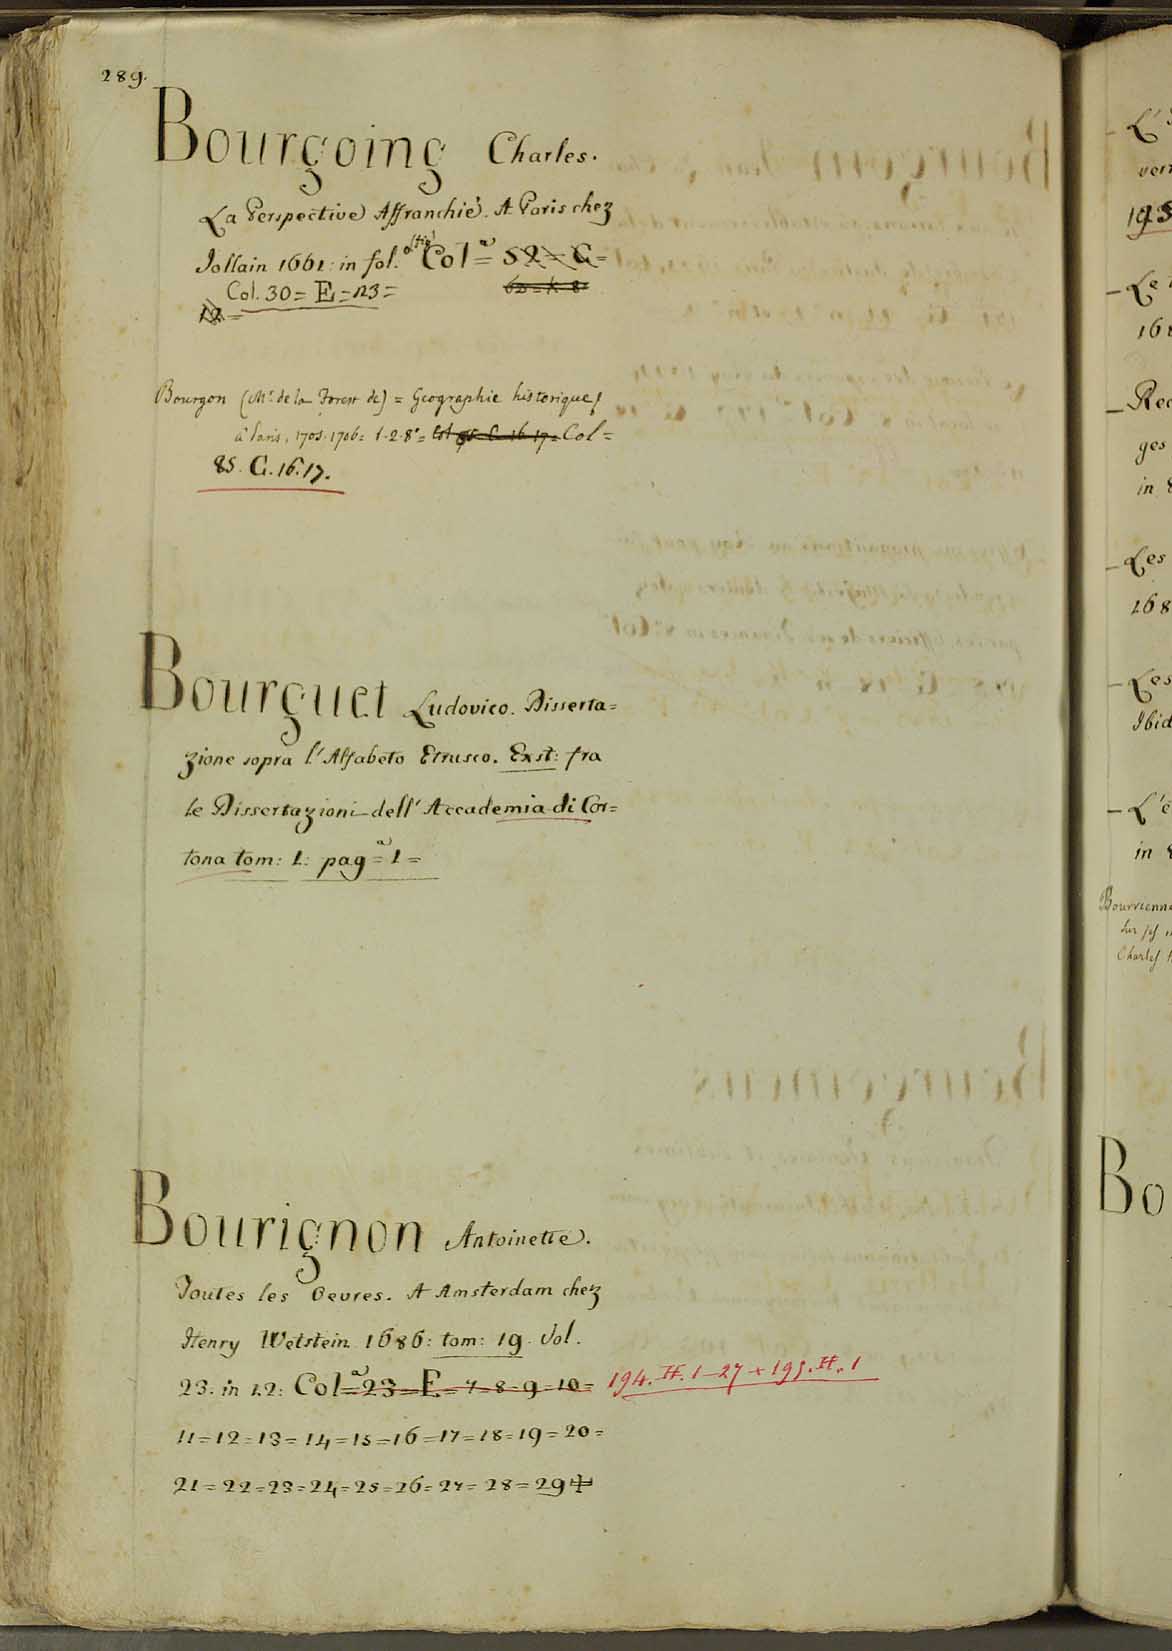 289.
Bourgoing Charles.
La Perspective Affranchié. A Paris chez
Jollain 1661: in fol. Colᵃ= 52= G=
Col. 30= E=123=
12=
Bourgon (Mr. de la Forest de) = Geographie historique,
à Paris, 1705. 1706= t. 2. 8°= Col 95. C. 16. 17= Col=
85. G. 16. 17.
Bourguet Ludovico. Disserta=
zione sopra l'Alfabeto Etrusco. Exst: fra
le Dissertazioni dell'Accademia di Cor=
tona tom: 1: pagᵃ= 1=
Bourignon Antoinette.
Toutes les Oevres. A Amsterdam chez
Henry Wetstein 1686: tom: 19. Vol.
23. in 12: Colᵃ= 23= E= 7= 8= 9= 10= 194. H. 1-27 + 195. H. 1
11= 12= 13= 14= 15= 16= 17= 18= 19= 20=
21= 22= 23= 24= 25= 26= 27= 28= 29
L'
1681
Rec
ges
in 8
Les
168
Les
Ibid
L'é
in 8
Charles
Bo